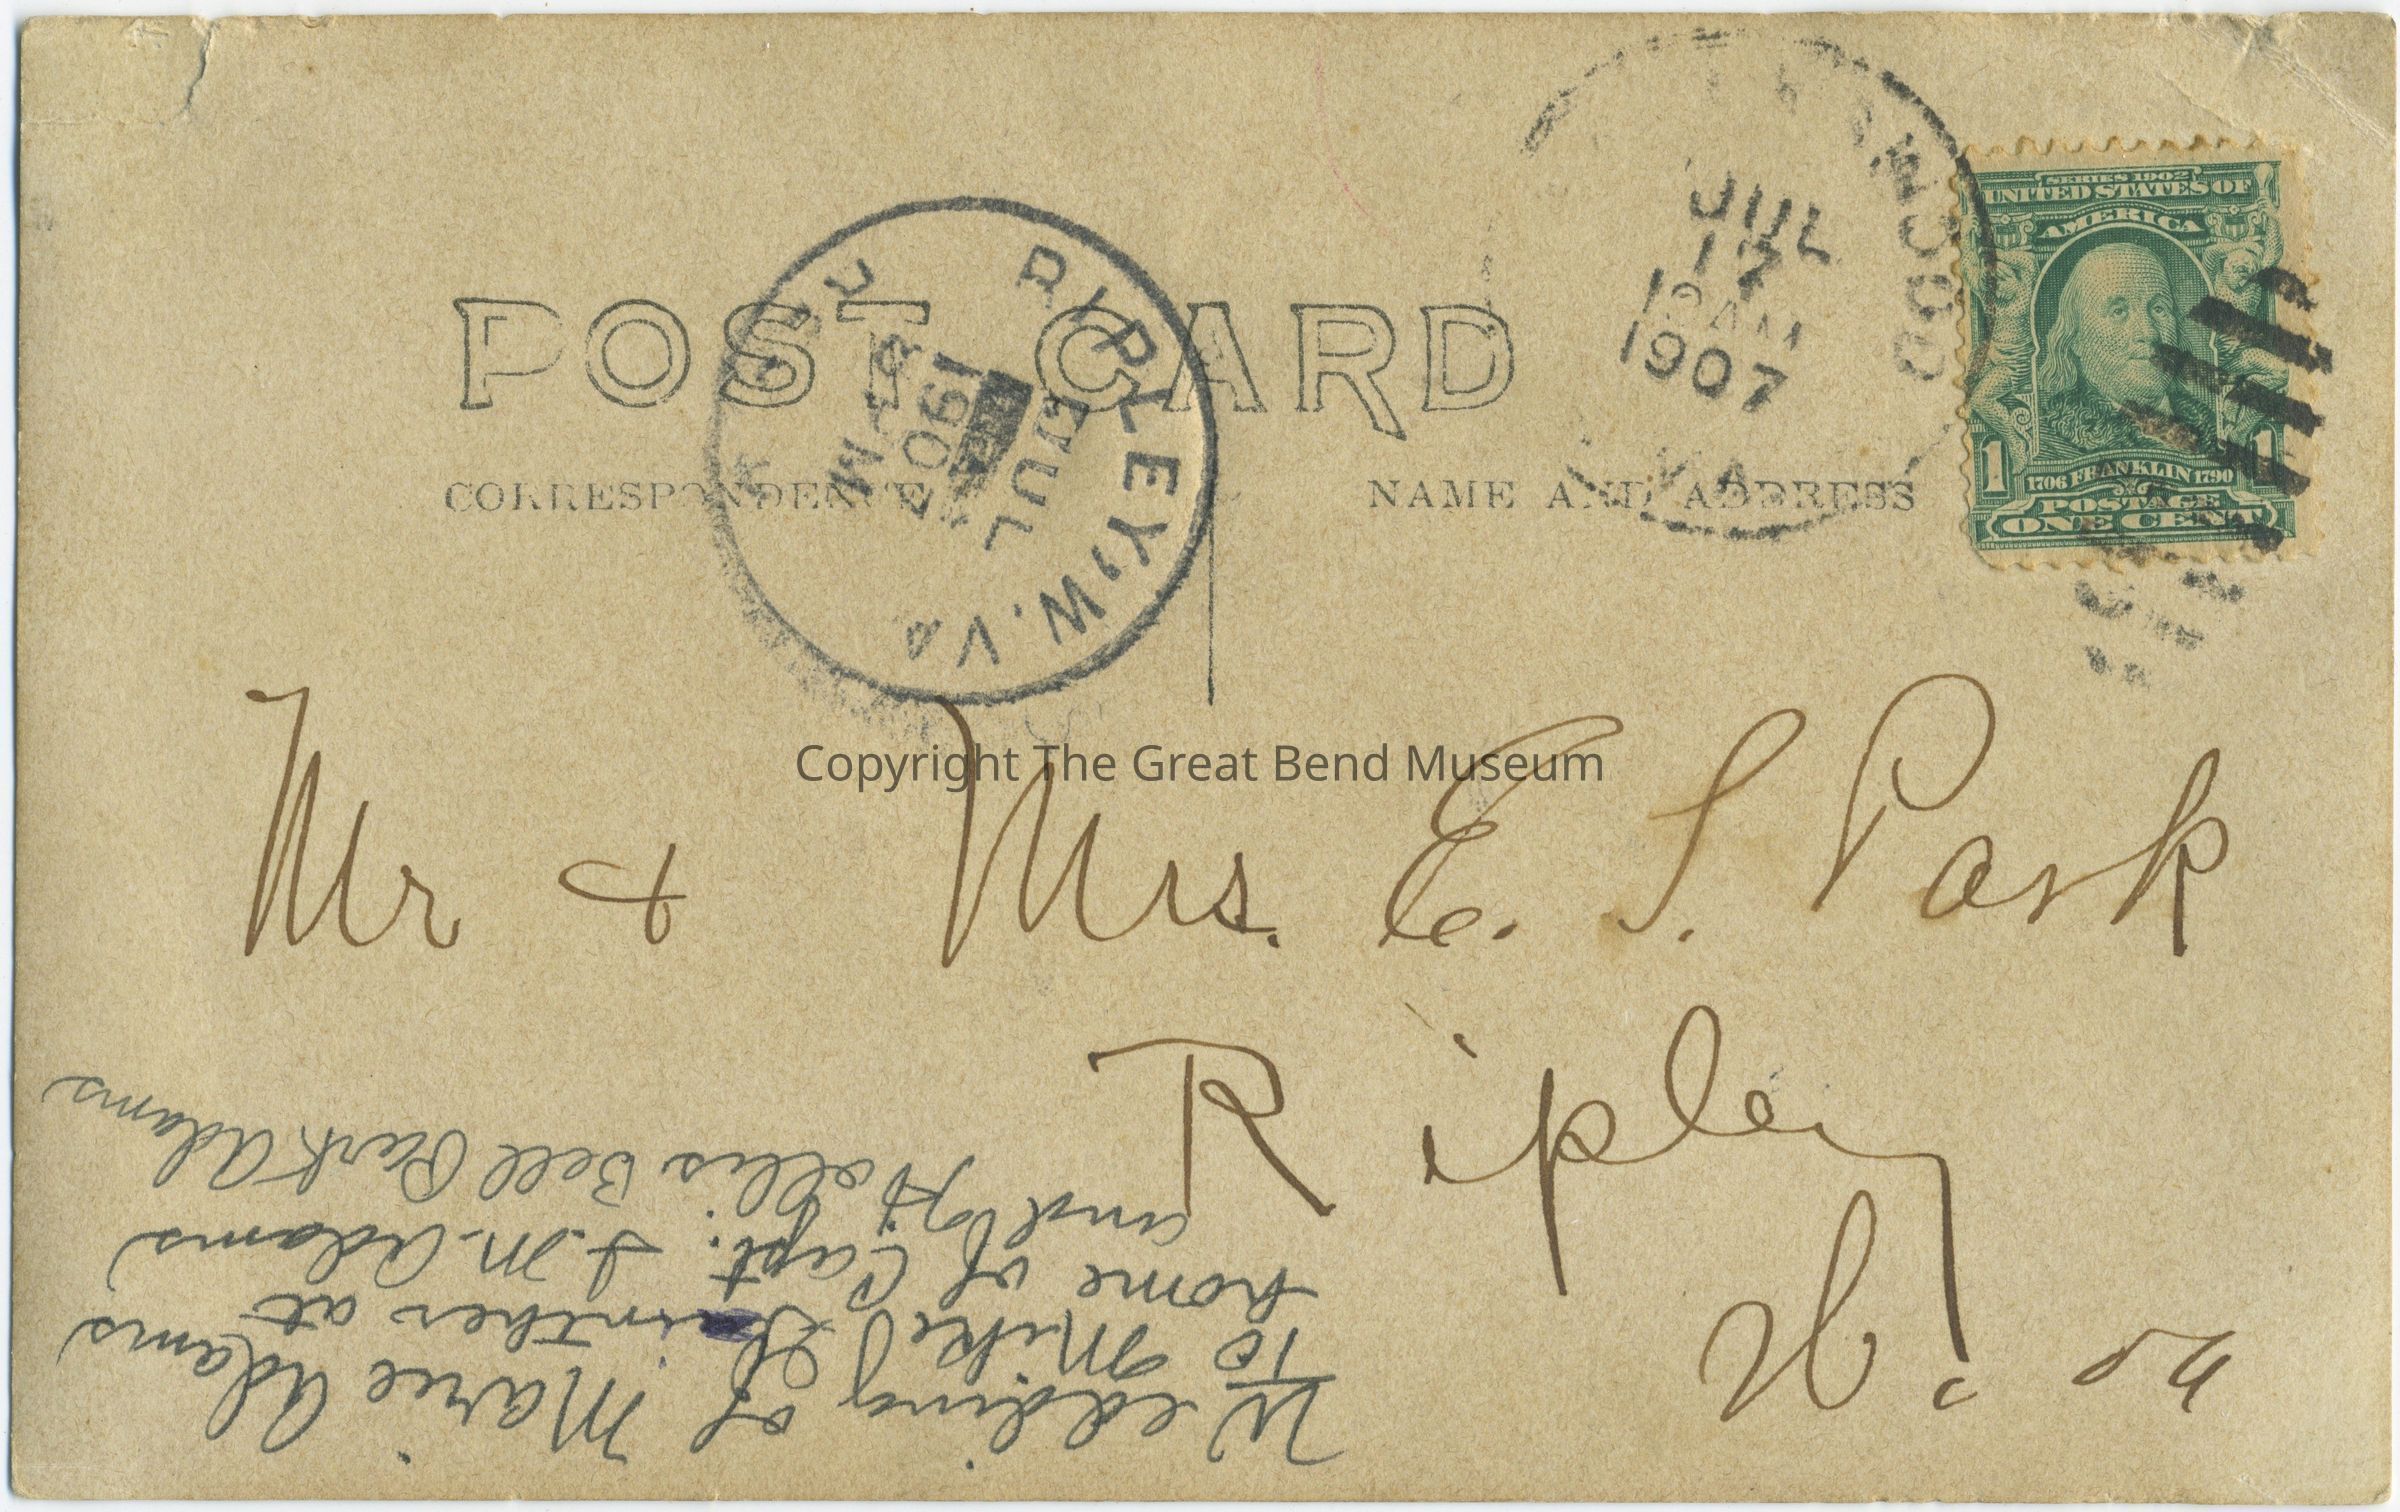 POST CARD
CORRESPONDENCE
NAME AND ADDRESS
RIPLEY, W. VA
JUL
1907
M
JUL
17
AM
1907
SERIES 1902
UNITED STATES OF
AMERICA
1 1
1706 FRANKLIN 1790
POSTAGE
ONE CENT
Copyright The Great Bend Museum
Mr & Mrs. E. S. Park
Ripley
W. va
Wedding of Marie Adams
To Mike at
home of Capt. I. M. Adams
and Hollis Bell Park Adams